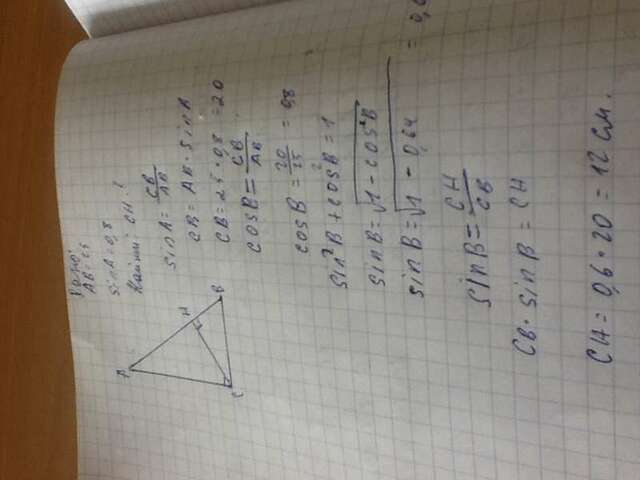 Дано:
AB=25
sinA=0,8
Найти: CH?
sinA = CB/AB
CB = AB · sinA
CB = 25 · 0,8 = 20
cosB = CB/AB
cosB = 20/25 = 0,8
sin²B + cos²B = 1
sinB = √1 - cos²B
sinB = √1 - 0,64 = 0,6
sinB = CH/CB
CB · sinB = CH
CH = 0,6 · 20 = 12 см.
A
H
B
C